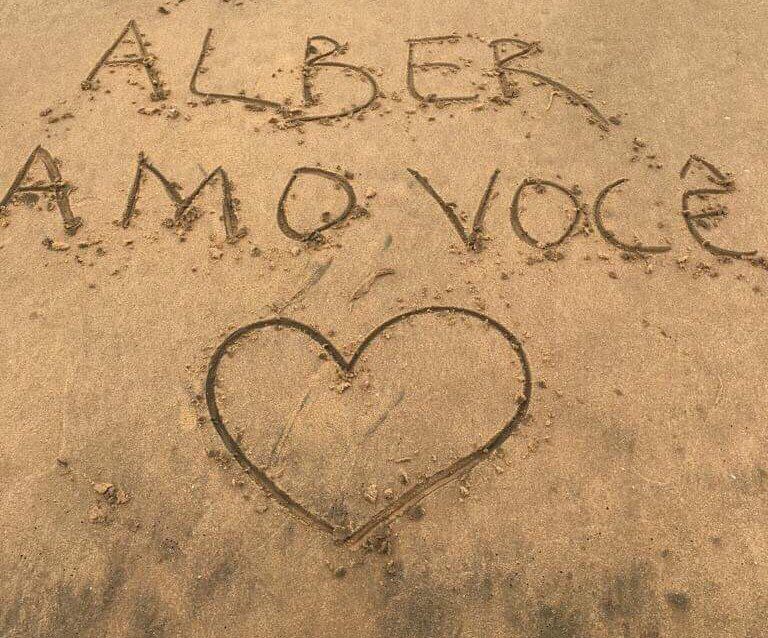 ALBER
AMO VOCÊ